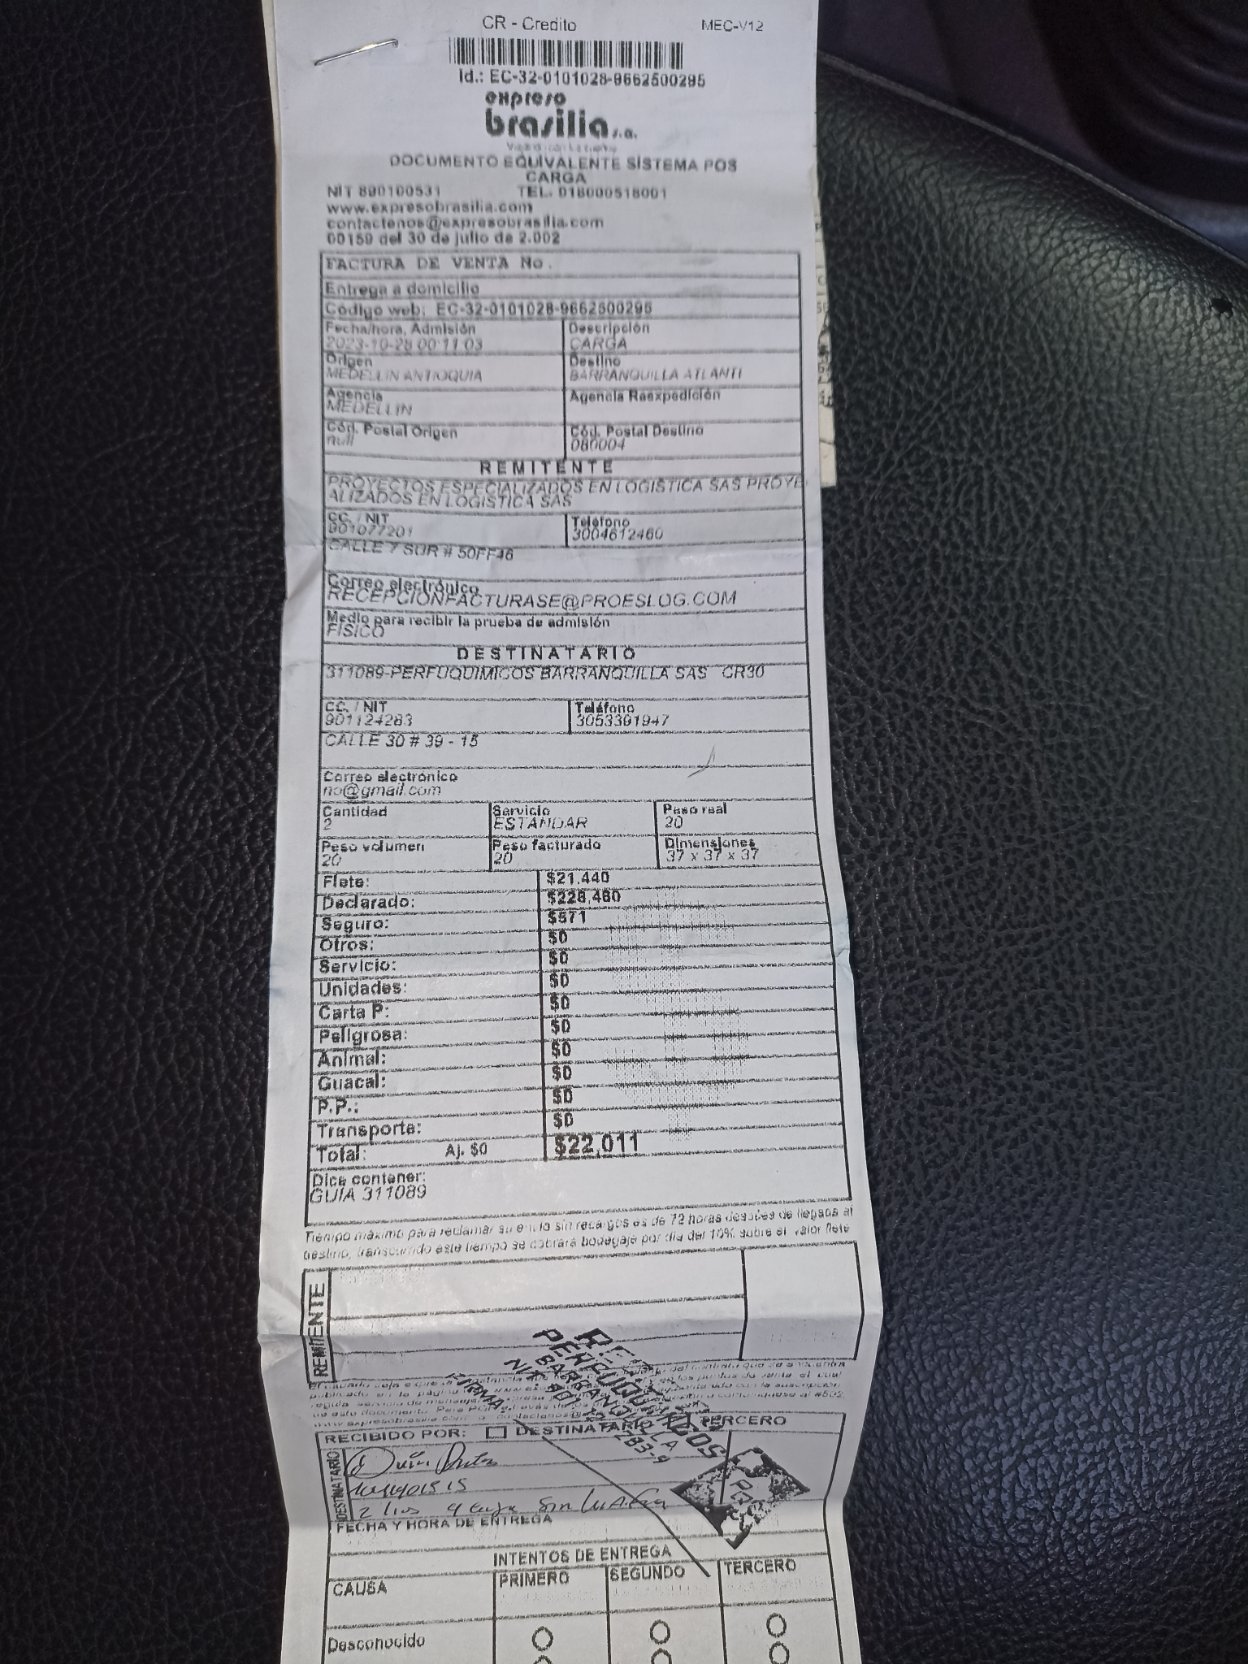 CR - Credito MEC-V12
Id.: EC-32-0101028-9662500295
expreso
brasilia s.a.
DOCUMENTO EQUIVALENTE SISTEMA POS
CARGA
NIT 890100531 TEL. 018000518001
www.expresobrasilia.com
contactenos@expresobrasilia.com
00159 del 30 de julio de 2.002
FACTURA DE VENTA No.
Entrega a domicilio
Código web: EC-32-0101028-9662500295
Fecha/hora, Admisión Descripción
2023-10-28 00:11:03 CARGA
Origen Destino
MEDELLIN ANTIOQUIA BARRANQUILLA ATLANTI
Agencia Agencia Reexpedición
MEDELLIN
Cód. Postal Origen Cód. Postal Destino
null 080004
REMITENTE
PROYECTOS ESPECIALIZADOS EN LOGISTICA SAS PROYE
ALIZADOS EN LOGISTICA SAS
CC. / NIT Teléfono
901077201 3004612460
CALLE 7 SUR # 50FF46
Correo electrónico
RECEPCIONFACTURASE@PROESLOG.COM
Medio para recibir la prueba de admisión
FISICO
DESTINATARIO
311089-PERFUQUIMICOS BARRANQUILLA SAS CR30
CC. / NIT Teléfono
901124283 3053391947
CALLE 30 # 39 - 15
Correo electrónico
no@gmail.com
Cantidad Servicio Peso real
2 ESTANDAR 20
Peso volumen Peso facturado Dimensiones
20 20 37 x 37 x 37
Flete: $21,440
Declarado: $228,460
Seguro: $571
Otros: $0
Servicio: $0
Unidades: $0
Carta P: $0
Peligrosa: $0
Animal: $0
Guacal: $0
P.P.: $0
Transporte: $0
Total: Aj. $0 $22,011
Dice contener:
GUIA 311089
Tiempo máximo para reclamar su envío sin recargos es de 72 horas después de llegada al
destino, transcurrido este tiempo se cobrará bodegaje por día del 10% sobre el valor flete
REMITENTE
PERFUQUIMICOS
BARRANQUILLA
FIRMA
RECIBIDO POR: DESTINATARIO TERCERO
DESTINATARIO
FECHA Y HORA DE ENTREGA
INTENTOS DE ENTREGA
CAUSA PRIMERO SEGUNDO TERCERO
Desconocido